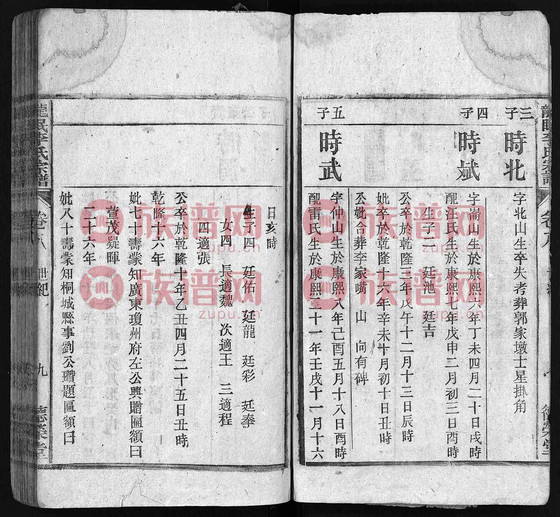 三子
時北
字北山生卒失考葬郭家墩土星掛角
四子
時斌
年丁未四月二十日戌時
配汪氏生於康熙七年戊申二月初三日酉時
生子二 廷池 廷吉
公卒於乾隆三年戊午十二月十三日辰時
妣卒於乾隆十六年辛未十月初十日丑時
公妣合葬李家嘴 山 向有碑
五子
時武
字仲山生於康熙八年己酉五月十八日酉時
配雷氏生於康熙二十一年壬戌十一月十六
龍眠李氏宗譜
卷八
世紀
九
德榮堂
日亥時
生子四 廷佑 廷龍 廷彩 廷奉
女四 長適魏 次適王 三適程
四適張
公卒於乾隆十年乙丑四月二十五日丑時
乾隆十六年
妣七十壽蒙知廣東瓊州府左公興贈匾額曰
萱茂寢暉
二十六年
妣八十壽蒙知桐城縣事劉公贈題匾額曰
族谱网